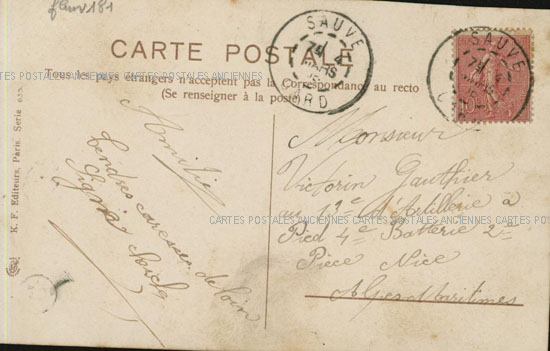 fleurs 181
CARTE POSTALE
Tous les pays étrangers n'acceptent pas la Correspondance au recto
(Se renseigner à la poste)
SAUVE
GARD
SAUVE
CARTES POSTALES ANCIENNES CARTES POSTALES ANCIENNES CARTES POSTALES ANCIENNES CARTES POSTALES ANCIENNES
K. F. Editeurs, Paris. Serie
Amitié
tendres caresses de loin
Signé
Monsieur
Victorin Gauthier
au 19e d'Artillerie à
Pied 4e Batterie 2me
Pièce Nice
Alpes Maritimes
CARTES POSTALES ANCIENNES CARTES POSTALES ANCIENNES CARTES POSTALES ANCIENNES